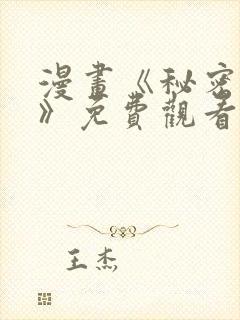 漫畫《秘密
》免費觀看
王杰